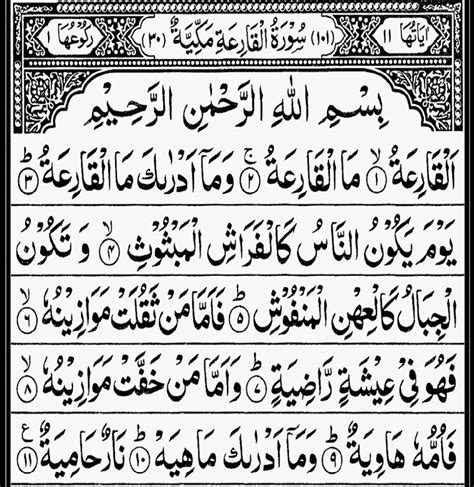 اٰيَاتُهَا ١١ (١٠١) سُوْرَةُ الْقَارِعَةِ مَكِّيَّةٌ (٣٠) رُكُوْعُهَا ١
بِسْمِ اللهِ الرَّحْمٰنِ الرَّحِيْمِ
اَلْقَارِعَةُ ۙ﴿١﴾ مَا الْقَارِعَةُ ۚ﴿٢﴾ وَمَاۤ اَدْرٰىكَ مَا الْقَارِعَةُ ؕ﴿٣﴾
يَوْمَ يَكُوْنُ النَّاسُ كَالْفَرَاشِ الْمَبْثُوْثِ ۙ﴿٤﴾ وَ تَكُوْنُ
الْجِبَالُ كَالْعِهْنِ الْمَنْفُوْشِ ؕ﴿٥﴾ فَاَمَّا مَنْ ثَقُلَتْ مَوَازِيْنُهٗ ۙ﴿٦﴾
فَهُوَ فِيْ عِيْشَةٍ رَّاضِيَةٍ ؕ﴿٧﴾ وَاَمَّا مَنْ خَفَّتْ مَوَازِيْنُهٗ ۙ﴿٨﴾
فَاُمُّهٗ هَاوِيَةٌ ؕ﴿٩﴾ وَمَاۤ اَدْرٰىكَ مَا هِيَهْ ؕ﴿١٠﴾ نَارٌ حَامِيَةٌ ﴿١١﴾ ع